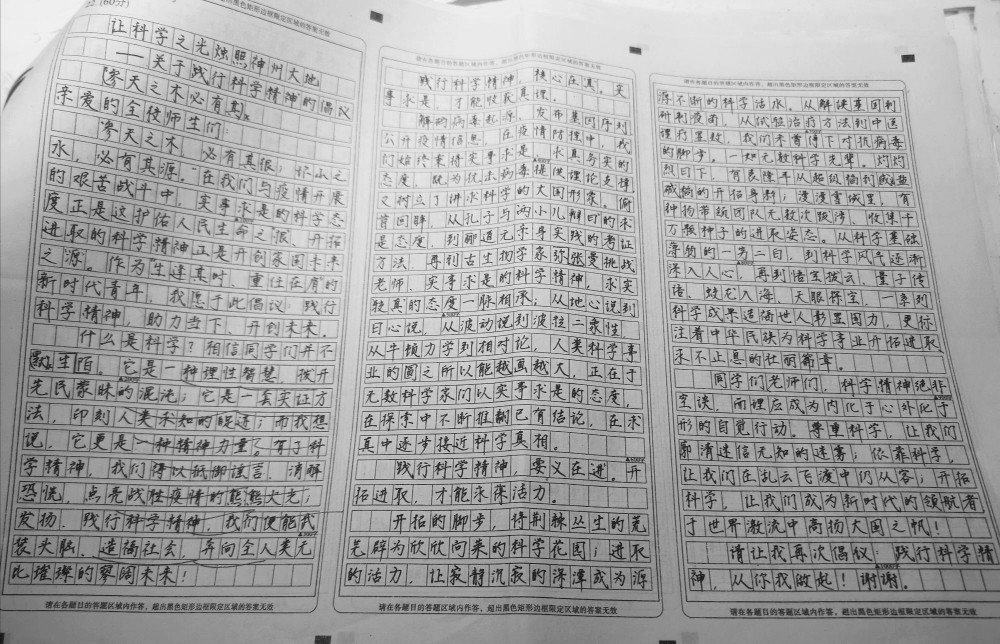 22 (60分)
超出黑色矩形边框限定区域的答案无效
让科学之光烛照神州大地
——关于践行科学精神的倡议
亲爱的全校师生们：
寥天之木，必有其根；怀山之
水，必有其源。在我们与疫情开展
的艰苦战斗中，实事求是的科学态
度正是这护佑人民生命之根、开拓
进取的科学精神正是开创家国未来
之源。作为生逢其时、重任在肩的
新时代青年，我愿于此倡议：践行
科学精神，助力当下、开创未来。
什么是科学？相信同学们并不
陌生。它是一种理性智慧，拨开
先民蒙昧的混沌；它是一套实证方
法，印刻人类求知的足迹；而我想
说，它更是一种精神力量。有了科
学精神，我们得以抵御谣言、消解
恐慌，点亮战胜疫情的熊熊火光；
发扬、践行科学精神，我们便能武
装头脑、造福社会，奔向全人类无
比璀璨的寥阔未来！
请在各题目的答题区域内作答，超出黑色矩形边框限定区域的答案无效
请在各题目的答题区域内作答，超出黑色矩形边框限定区域的答案无效
践行科学精神，核心在真。实
事求是，才能收获真理。
解的病毒起源、发布基因序列、
公开疫情信息，在疫情防控中，我
们始终秉持实事求是、求真务实的
态度，既为抗击病毒提供理论支撑，
又树立了讲求科学的大国形象。俯
首回眸，从孔子与两小儿辩日的求
是态度，到郦道元亲身实践的考证
方法，再到古生物学家张弥曼挑战
老师，实事求是的科学精神，求实
较真的态度一脉相承；从地心说到
日心说，从波动说到波粒二象性，
从牛顿力学到相对论，人类科学事
业的圆之所以能越画越大，正在于
无数科学家们以实事求是的态度，
在探索中不断推翻已有结论，在求
真中逐步接近科学真相。
践行科学精神，要义在进。开
拓进取，才能永葆活力。
开拓的脚步，将荆棘丛生的荒
芜辟为欣欣向荣的科学花园；进取
的活力，让寂静沉寂的深潭成为源
请在各题目的答题区域内作答，超出黑色矩形边框限定区域的答案无效
请在各题目的答题区域内作答，超出黑色矩形边框限定区域的答案无效
源不断的科学活水。从解读基因到
研制疫苗，从试验治疗方法到中医
课疗复数，我们未曾停下对抗病毒
的脚步。一如无数科学先辈。灼灼
烈日下，有袁隆平从超级稻到咸盐
碱稻的开拓身影；漫漫雪域里，有
种扬带领团队无数次跋涉，收集千
万颗种子的进取姿态。从科学基础
薄弱的一穷二白，到科学风气逐渐
深入人心，再到悟空拨云、量子传
信、蛟龙入海、天眼探空，一系列
科学成果造福世人彰显国力，更标
注着中华民族为科学事业开拓进取、
永不止息的壮丽篇章。
同学们老师们，科学精神绝非
空谈，而理应成为内化于心外化于
形的自觉行动。尊重科学，让我们
廓清迷信无知的迷雾；依靠科学，
让我们在乱云飞渡中仍从容；开拓
科学，让我们成为新时代的领航者
于世界激流中高扬大国之帆！
请让我再次倡议：践行科学精
神，从你我做起！谢谢。
请在各题目的答题区域内作答，超出黑色矩形边框限定区域的答案无效